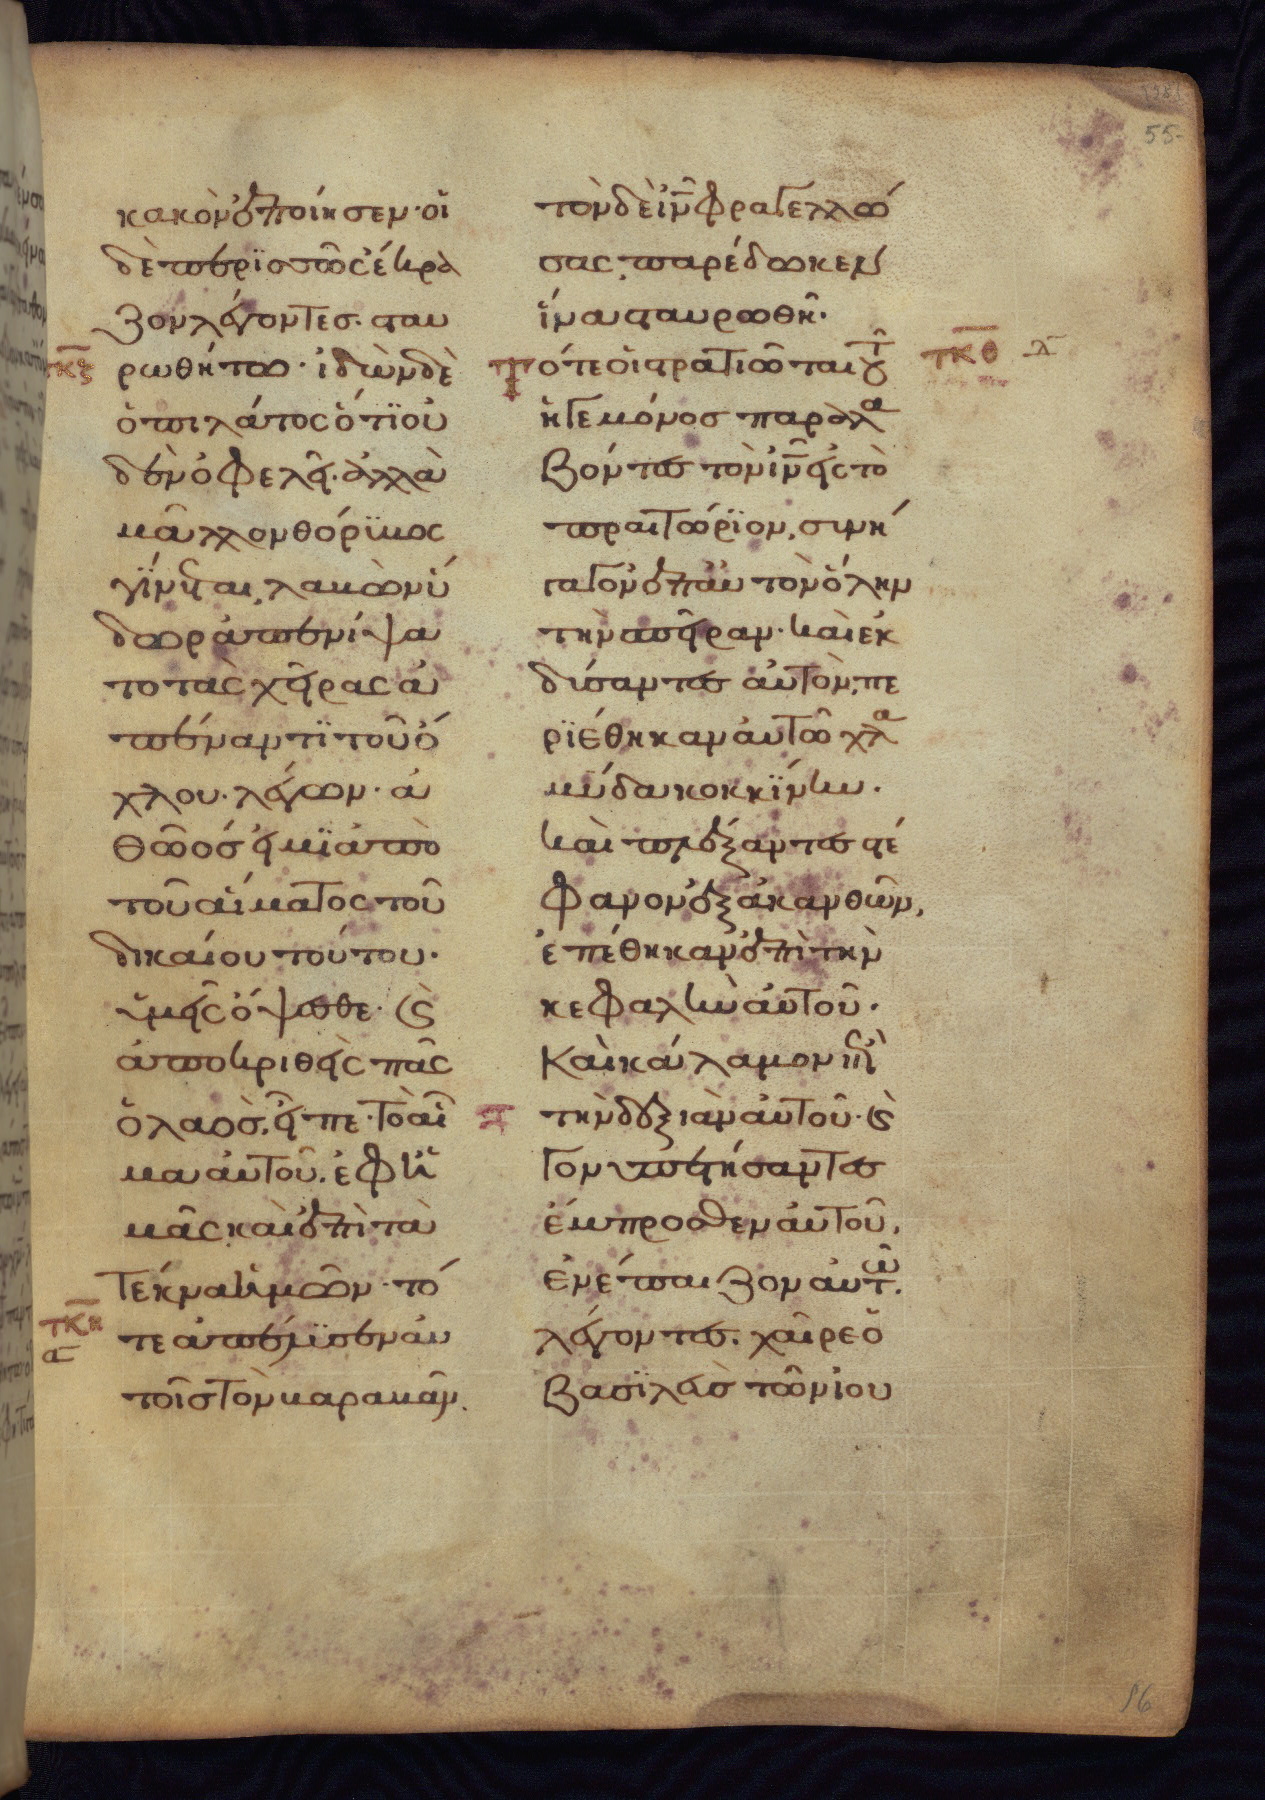 55
κακὸν ἐποίησεν· οἱ
δὲ περϊσσῶς ἐκρα
ζον λέγοντες· σταυ
τκζ ρωθήτω· ἰδὼν δὲ
ὁ πιλάτος ὅτϊ οὐ
δὲν ὀφελεῖ· ἀλλὰ
μᾶλλον θόρϊμος
γϊνεται, λαμὼν ὕ
δωρ ἀπενίψα
το τὰς χεῖρας ἀ
πέναντϊ τοῦ ὄ
χλου· λέγων· ἀ
θῶός εἰμϊ ἀπὸ
τοῦ αἵματος τοῦ
δικαίου τούτου·
ὑμεῖς ὄψεσθε· ϛ
ἀποκριθεὶς πᾶς
ὁ λαὸς, εἶπε· τὸ αἷ
μα αὐτοῦ· ἐφ ἡ
μᾶς καὶ ἐπὶ τὰ
τέκνα ἡμῶν· τό
τκη
α
τε ἀπέλϊσεν αὐ
τοῖς τὸν καραμᾶν.
τὸν δὲ ἰν̅ φραγελλώ
σας, παρέδωκεν
ἵνα σταυρωθῆ·
Τότε οἱ στρατιῶται τ ȣ τκθ
ἡγεμόνος παραλα
βόντες τὸν ἰν̅ εἰς τὸ
πραιτώρϊον, σινή
γαγον ἐπ αὐτὸν ὅλην
τὴν σπεῖραν· καὶ ἐκ
δύσαντες αὐτὸν, πε
ρϊέθηκαν αὐτῶ χλα
μύδα κοκκϊνην·
καὶ πλέξαντες στέ
φανον ἐξ ἀκανθῶν,
ἐπέθηκαν ἐπὶ τὴν
κεφαλὴν αὐτοῦ·
Καὶ κάλαμον ἐπὶ
τὴν δεξιὰν αὐτοῦ· ϛ
γονυπετήσαντες
ἔμπροσθεν αὐτοῦ,
ἐνέπαιζον αὐτῶ.
λέγοντες· χαῖρε ὁ
βασϊλεὺς τῶν ἰου